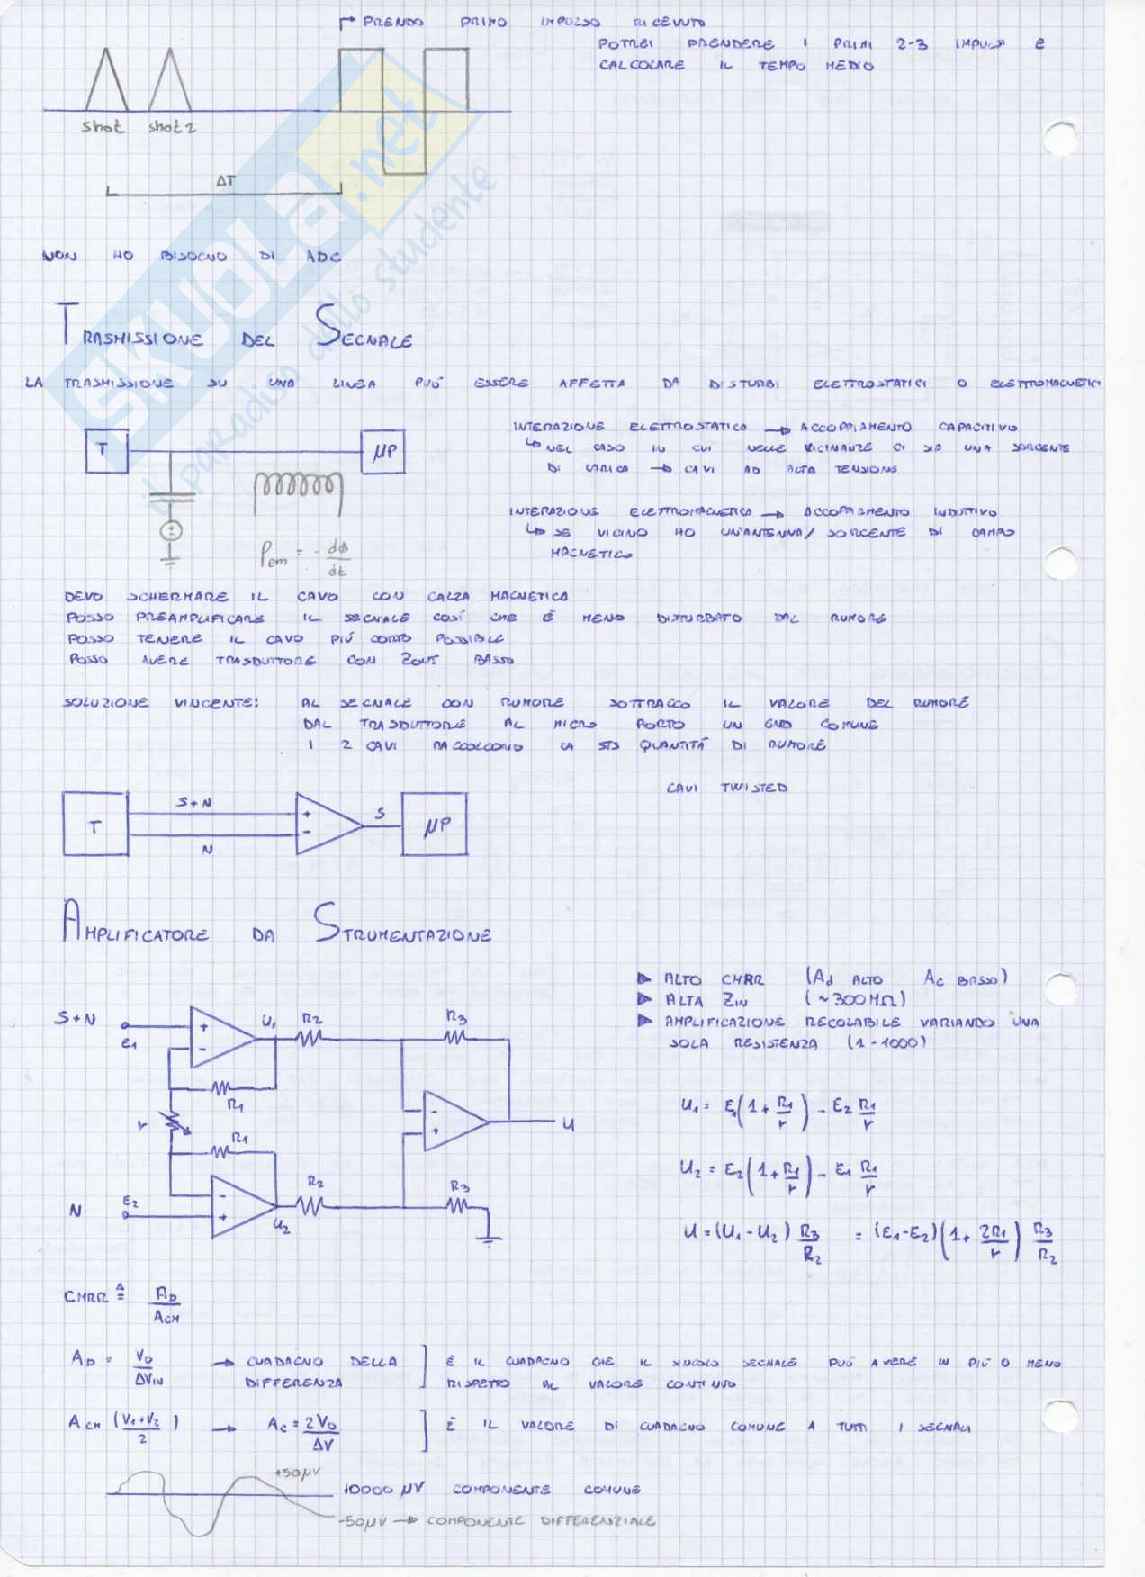 PRENDO PRIMO IMPULSO RICEVUTO
POTREI PRENDERE I PRIMI 2-3 IMPULSI E
CALCOLARE IL TEMPO MEDIO
shot shot2
ΔT
NON HO BISOGNO DI ADC
TRASMISSIONE DEL SEGNALE
LA TRASMISSIONE SU UNA LINEA PUÒ ESSERE AFFETTA DA DISTURBI ELETTROSTATICI O ELETTROMAGNETICI
T μP
INTERAZIONE ELETTROSTATICA → ACCOPPIAMENTO CAPACITIVO
↳ NEL CASO IN CUI NELLE VICINANZE CI SIA UNA SORGENTE
DI CARICA → CAVI AD ALTA TENSIONE
INTERAZIONE ELETTROMAGNETICA → ACCOPPIAMENTO INDUTTIVO
↳ SE VICINO HO UN'ANTENNA / SORGENTE DI CAMPO
MAGNETICO
fem = - dϕ/dt
DEVO SCHERMARE IL CAVO CON CALZA MAGNETICA
POSSO PREAMPLIFICARE IL SEGNALE COSÍ CHE É MENO DISTURBATO DAL RUMORE
POSSO TENERE IL CAVO PIÚ CORTO POSSIBILE
POSSO AVERE TRASDUTTORE CON ZOUT BASSO
SOLUZIONE VINCENTE: AL SEGNALE CON RUMORE SOTTRAGGO IL VALORE DEL RUMORE
DAL TRASDUTTORE AL MICRO PORTO UN GND COMUNE
I 2 CAVI RACCOLGONO LA STS QUANTITÁ DI RUMORE
CAVI TWISTED
T S+N N + - S μP
AMPLIFICATORE DA STRUMENTAZIONE
▶ ALTO CMRR (Ad ALTO Ac BASSO)
▶ ALTA ZIN (~300MΩ)
▶ AMPLIFICAZIONE REGOLABILE VARIANDO UNA
SOLA RESISTENZA (1-1000)
S+N E1 + - U1 R2 R3
R1
r
R1
- + U
N E2 - + U2 R2 R3
U1 = E1(1 + R1/r) - E2 R1/r
U2 = E2(1 + R1/r) - E1 R1/r
U = (U1 - U2) R3/R2 = (E1-E2)(1 + 2R1/r) R3/R2
CMRR ≜ AD/ACM
AD = VO/ΔVIN → GUADAGNO DELLA DIFFERENZA ] É IL GUADAGNO CHE IL SINGOLO SEGNALE PUÓ AVERE IN PIÚ O MENO
RISPETTO AL VALORE CONTINUO
ACM (V1+V2/2) → AC = 2VO/ΔV ] É IL VALORE DI GUADAGNO COMUNE A TUTTI I SEGNALI
+50μV
10000 μV COMPONENTE COMUNE
-50μV → COMPONENTE DIFFERENZIALE
SKUOLA.net
il paradiso dello studente